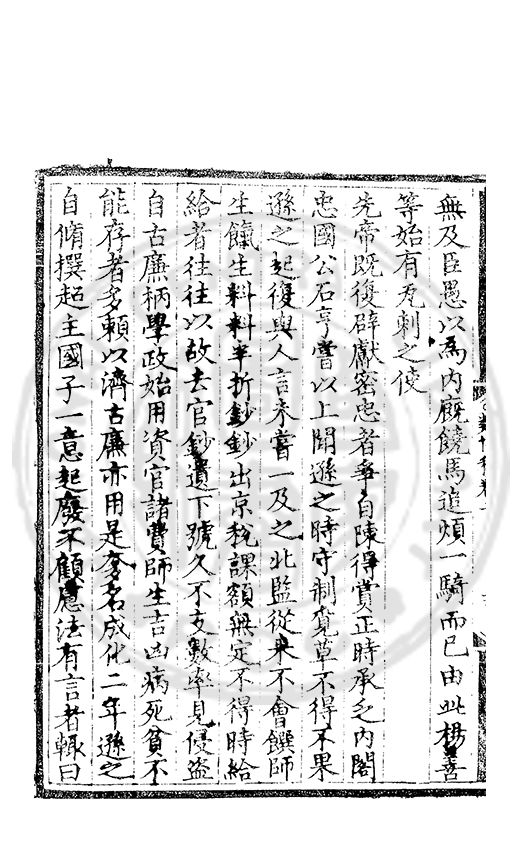 無及臣愚以為内廐饒馬追煩一騎而已由此楊善
等始有充刺之使
先帝既復辟獻密忠者爭自陳得賞正時承乏内閣
忠國公石亨嘗以上聞遜之時守制覓草不得不果
遜之起復與人言未嘗一及之北監從來不會饌師
生饎生料料率折鈔鈔出京稅課額無定不得時給
給者往往以故去官鈔遺下號久不支數率見侵盜
自古廉柄學政始用資官諸費師生吉凶病死貧不
能存者多賴以濟古廉亦用是實名成化二年遜之
自脩撰超主國子一意起廢不顧慮法有言者輒曰